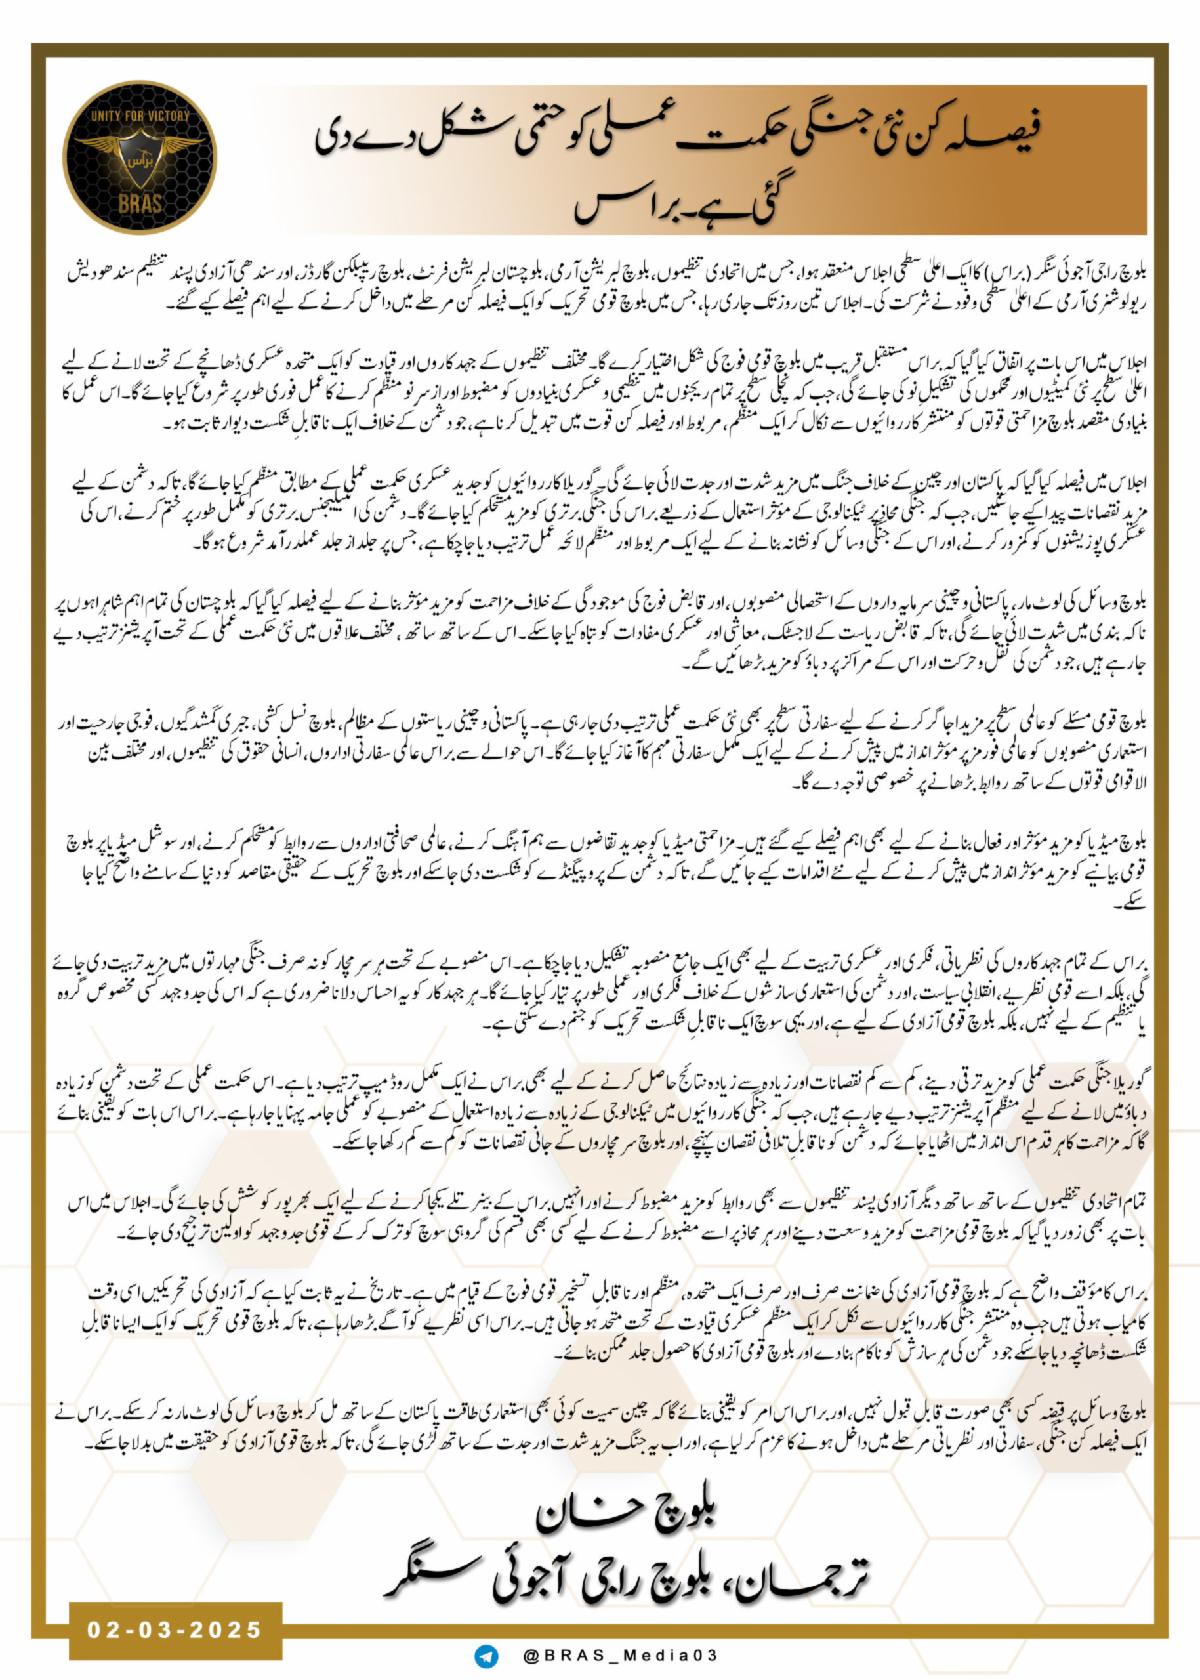 UNITY FOR VICTORY
براس
BRAS
فیصلہ کن نئی جنگی حکمت عملی کو حتمی شکل دے دی
گئی ہے۔ براس
بلوچ راجی آجوئی سنگر (براس) کا ایک اعلیٰ سطحی اجلاس منعقد ہوا، جس میں اتحادی تنظیموں، بلوچ لبریشن آرمی، بلوچستان لبریشن فرنٹ، بلوچ ریپبلکن گارڈز، اور سندھی آزادی پسند تنظیم سندھودیش
ریولوشنری آرمی کے اعلیٰ سطحی وفود نے شرکت کی۔ اجلاس تین روز تک جاری رہا، جس میں بلوچ قومی تحریک کو ایک فیصلہ کن مرحلے میں داخل کرنے کے لیے اہم فیصلے کیے گئے۔
اجلاس میں اس بات پر اتفاق کیا گیا کہ براس مستقبل قریب میں بلوچ قومی فوج کی شکل اختیار کرے گا۔ مختلف تنظیموں کے جہدکاروں اور قیادت کو ایک متحدہ عسکری ڈھانچے کے تحت لانے کے لیے
اعلیٰ سطح پر نئی کمیٹیوں اور محکموں کی تشکیل نو کی جائے گی، جب کہ نچلی سطح پر تمام ریجنوں میں تنظیمی و عسکری بنیادوں کو مضبوط اور از سر نو منظم کرنے کا عمل فوری طور پر شروع کیا جائے گا۔ اس عمل کا
بنیادی مقصد بلوچ مزاحمتی قوتوں کو منتشر کارروائیوں سے نکال کر ایک منظم، مربوط اور فیصلہ کن قوت میں تبدیل کرنا ہے، جو دشمن کے خلاف ایک ناقابلِ شکست دیوار ثابت ہو۔
اجلاس میں فیصلہ کیا گیا کہ پاکستان اور چین کے خلاف جنگ میں مزید شدت اور جدت لائی جائے گی۔ گوریلا کارروائیوں کو جدید عسکری حکمت عملی کے مطابق منظم کیا جائے گا، تاکہ دشمن کے لیے
مزید نقصانات پیدا کیے جا سکیں، جب کہ جنگی محاذ پر ٹیکنالوجی کے مؤثر استعمال کے ذریعے براس کی جنگی برتری کو مزید مستحکم کیا جائے گا۔ دشمن کی انٹیلیجنس برتری کو مکمل طور پر ختم کرنے، اس کی
عسکری پوزیشنوں کو کمزور کرنے، اور اس کے جنگی وسائل کو نشانہ بنانے کے لیے ایک مربوط اور منظم لائحہ عمل ترتیب دیا جا چکا ہے، جس پر جلد از جلد عملدرآمد شروع ہوگا۔
بلوچ وسائل کی لوٹ مار، پاکستانی و چینی سرمایہ داروں کے استحصالی منصوبوں، اور قابض فوج کی موجودگی کے خلاف مزاحمت کو مزید مؤثر بنانے کے لیے فیصلہ کیا گیا کہ بلوچستان کی تمام اہم شاہراہوں پر
ناکہ بندی میں شدت لائی جائے گی، تاکہ قابض ریاست کے لاجسٹک، معاشی اور عسکری مفادات کو تباہ کیا جا سکے۔ اس کے ساتھ ساتھ، مختلف علاقوں میں نئی حکمت عملی کے تحت آپریشنز ترتیب دیے
جا رہے ہیں، جو دشمن کی نقل و حرکت اور اس کے مراکز پر دباؤ کو مزید بڑھائیں گے۔
بلوچ قومی مسئلے کو عالمی سطح پر مزید اجاگر کرنے کے لیے سفارتی سطح پر بھی نئی حکمت عملی ترتیب دی جا رہی ہے۔ پاکستانی و چینی ریاستوں کے مظالم، بلوچ نسل کشی، جبری گمشدگیوں، فوجی جارحیت اور
استعماری منصوبوں کو عالمی فورمز پر مؤثر انداز میں پیش کرنے کے لیے ایک مکمل سفارتی مہم کا آغاز کیا جائے گا۔ اس حوالے سے براس عالمی سفارتی اداروں، انسانی حقوق کی تنظیموں، اور مختلف بین
الاقوامی قوتوں کے ساتھ روابط بڑھانے پر خصوصی توجہ دے گا۔
بلوچ میڈیا کو مزید مؤثر اور فعال بنانے کے لیے بھی اہم فیصلے کیے گئے ہیں۔ مزاحمتی میڈیا کو جدید تقاضوں سے ہم آہنگ کرنے، عالمی صحافتی اداروں سے روابط کو مستحکم کرنے، اور سوشل میڈیا پر بلوچ
قومی بیانیے کو مزید مؤثر انداز میں پیش کرنے کے لیے نئے اقدامات کیے جائیں گے، تاکہ دشمن کے پروپیگنڈے کو شکست دی جا سکے اور بلوچ تحریک کے حقیقی مقاصد کو دنیا کے سامنے واضح کیا جا
سکے۔
براس کے تمام جہدکاروں کی نظریاتی، فکری اور عسکری تربیت کے لیے بھی ایک جامع منصوبہ تشکیل دیا جا چکا ہے۔ اس منصوبے کے تحت ہر سرمچار کو نہ صرف جنگی مہارتوں میں مزید تربیت دی جائے
گی، بلکہ اسے قومی نظریے، انقلابی سیاست، اور دشمن کی استعماری سازشوں کے خلاف فکری اور عملی طور پر تیار کیا جائے گا۔ ہر جہدکار کو یہ احساس دلانا ضروری ہے کہ اس کی جدوجہد کسی مخصوص گروہ
یا تنظیم کے لیے نہیں، بلکہ بلوچ قومی آزادی کے لیے ہے، اور یہی سوچ ایک ناقابلِ شکست تحریک کو جنم دے سکتی ہے۔
گوریلا جنگی حکمت عملی کو مزید ترقی دینے، کم سے کم نقصانات اور زیادہ سے زیادہ نتائج حاصل کرنے کے لیے بھی براس نے ایک مکمل روڈ میپ ترتیب دیا ہے۔ اس حکمت عملی کے تحت دشمن کو زیادہ
دباؤ میں لانے کے لیے منظم آپریشنز ترتیب دیے جا رہے ہیں، جب کہ جنگی کارروائیوں میں ٹیکنالوجی کے زیادہ سے زیادہ استعمال کے منصوبے کو عملی جامہ پہنایا جا رہا ہے۔ براس اس بات کو یقینی بنائے
گا کہ مزاحمت کا ہر قدم اس انداز میں اٹھایا جائے کہ دشمن کو ناقابلِ تلافی نقصان پہنچے، اور بلوچ سرمچاروں کے جانی نقصانات کو کم سے کم رکھا جا سکے۔
تمام اتحادی تنظیموں کے ساتھ ساتھ دیگر آزادی پسند تنظیموں سے بھی روابط کو مزید مضبوط کرنے اور انہیں براس کے بینر تلے یکجا کرنے کے لیے ایک بھرپور کوشش کی جائے گی۔ اجلاس میں اس
بات پر بھی زور دیا گیا کہ بلوچ قومی مزاحمت کو مزید وسعت دینے اور ہر محاذ پر اسے مضبوط کرنے کے لیے کسی بھی قسم کی گروہی سوچ کو ترک کر کے قومی جدوجہد کو اولین ترجیح دی جائے۔
براس کا مؤقف واضح ہے کہ بلوچ قومی آزادی کی ضمانت صرف اور صرف ایک متحدہ، منظم اور ناقابلِ تسخیر قومی فوج کے قیام میں ہے۔ تاریخ نے یہ ثابت کیا ہے کہ آزادی کی تحریکیں اسی وقت
کامیاب ہوتی ہیں جب وہ منتشر جنگی کارروائیوں سے نکل کر ایک منظم عسکری قیادت کے تحت متحد ہو جاتی ہیں۔ براس اسی نظریے کو آگے بڑھا رہا ہے، تاکہ بلوچ قومی تحریک کو ایک ایسا ناقابلِ
شکست ڈھانچہ دیا جا سکے جو دشمن کی ہر سازش کو ناکام بنا دے اور بلوچ قومی آزادی کا حصول جلد ممکن بنائے۔
بلوچ وسائل پر قبضہ کسی بھی صورت قابلِ قبول نہیں، اور براس اس امر کو یقینی بنائے گا کہ چین سمیت کوئی بھی استعماری طاقت پاکستان کے ساتھ مل کر بلوچ وسائل کی لوٹ مار نہ کر سکے۔ براس نے
ایک فیصلہ کن جنگی، سفارتی اور نظریاتی مرحلے میں داخل ہونے کا عزم کر لیا ہے، اور اب یہ جنگ مزید شدت اور جدت کے ساتھ لڑی جائے گی، تاکہ بلوچ قومی آزادی کو حقیقت میں بدلا جا سکے۔
بلوچ خان
ترجمان، بلوچ راجی آجوئی سنگر
02-03-2025
@BRAS_Media03